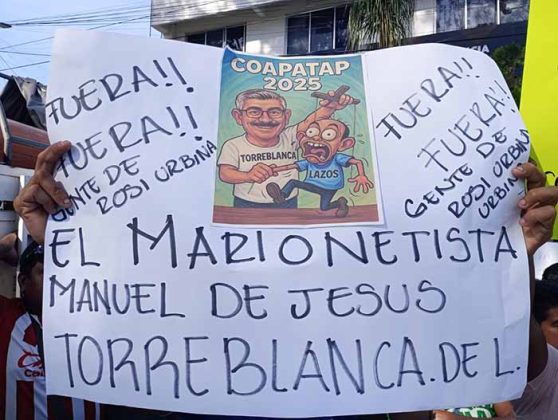 COAPATAP
2025
TORREBLANCA
LAZOS
FUERA!!
FUERA!!
GENTE DE
ROSI URBINA
FUERA!!
FUERA!!
GENTE DE
ROSI URBINA
URBINA
EL MARIONETISTA
MANUEL DE JESUS
TORREBLANCA. DE L.